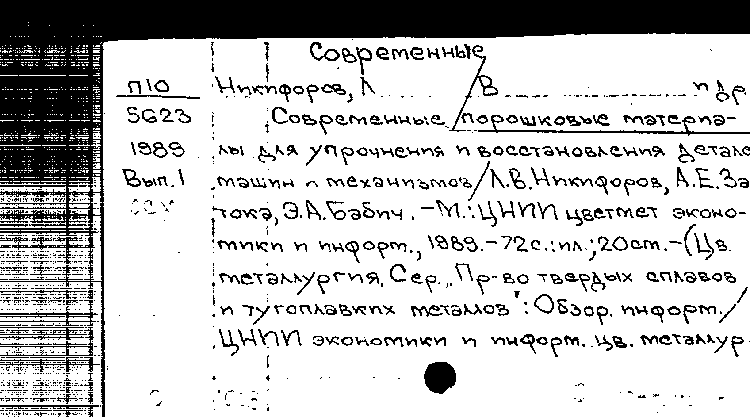 Современные
П10 Никифоров, Л. В. и др.
5623 Современные порошковые материа-
1989 лы для упрочнения и восстановления детале
Вып.1 машин и механизмов / Л.В. Никифоров, А.Е. За
тока, Э.А. Бабич. – М.: ЦНИИ цветмет эконо-
мики и информ., 1989. – 72 с.: ил.; 20 см. – (Цв.
металлургия. Сер. „Пр-во твердых сплавов
и тугоплавких металлов": Обзор. информ. /
ЦНИИ экономики и информ. цв. металлур